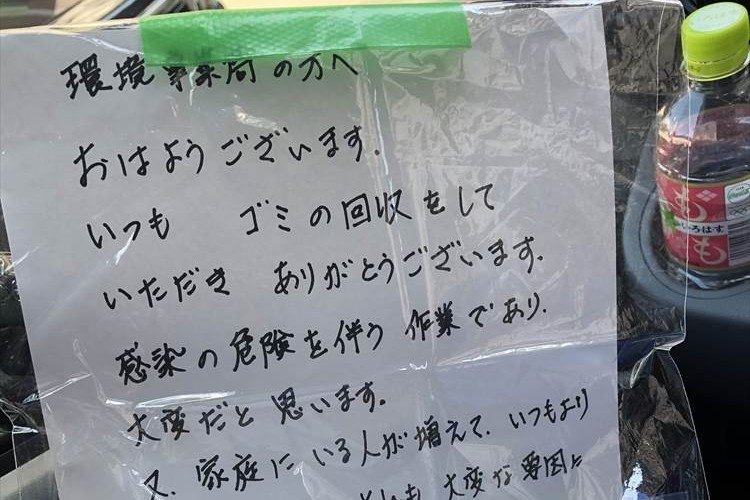 環境事業局の方へ
おはようございます.
いつも ゴミの回収をして
いただき ありがとうございます.
感染の危険を伴う 作業であり.
大変だと思います.
又、家庭にいる人が増えて、いつもより
大変な要因に
もも
いろはす